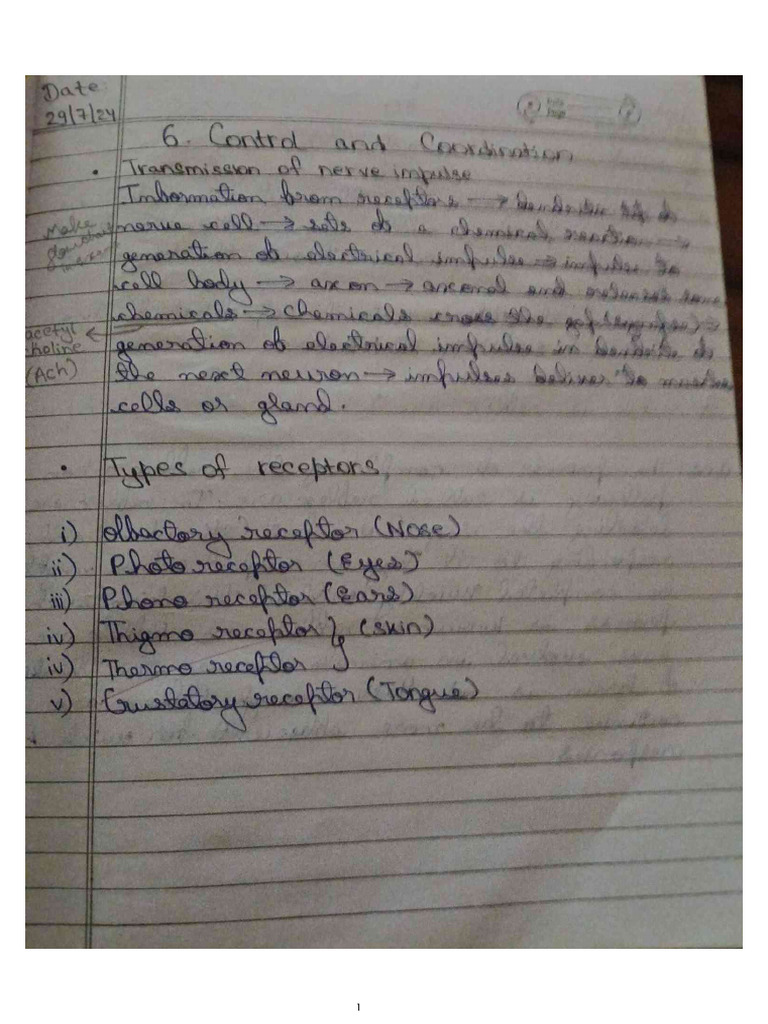 Date
29/7/24
6. Control and Coordination
• Transmission of nerve impulse
Information from receptors → dendritic tip of
nerve cell → sets of a chemical reaction →
Make
generation of electrical impulse → impulse to
cell body → axon → axonal end releases some
chemicals → chemicals cross the gap (synapse) →
acetyl
choline
(Ach)
generation of electrical impulse in dendrite of
the next neuron → impulses deliver to muscle
cells or gland.
• Types of receptors
i) Olfactory receptor (Nose)
ii) Photo receptor (Eyes)
iii) Phono receptor (Ears)
iv) Thigmo receptor } (Skin)
iv) Thermo receptor
v) Grustatory receptor (Tongue)
1